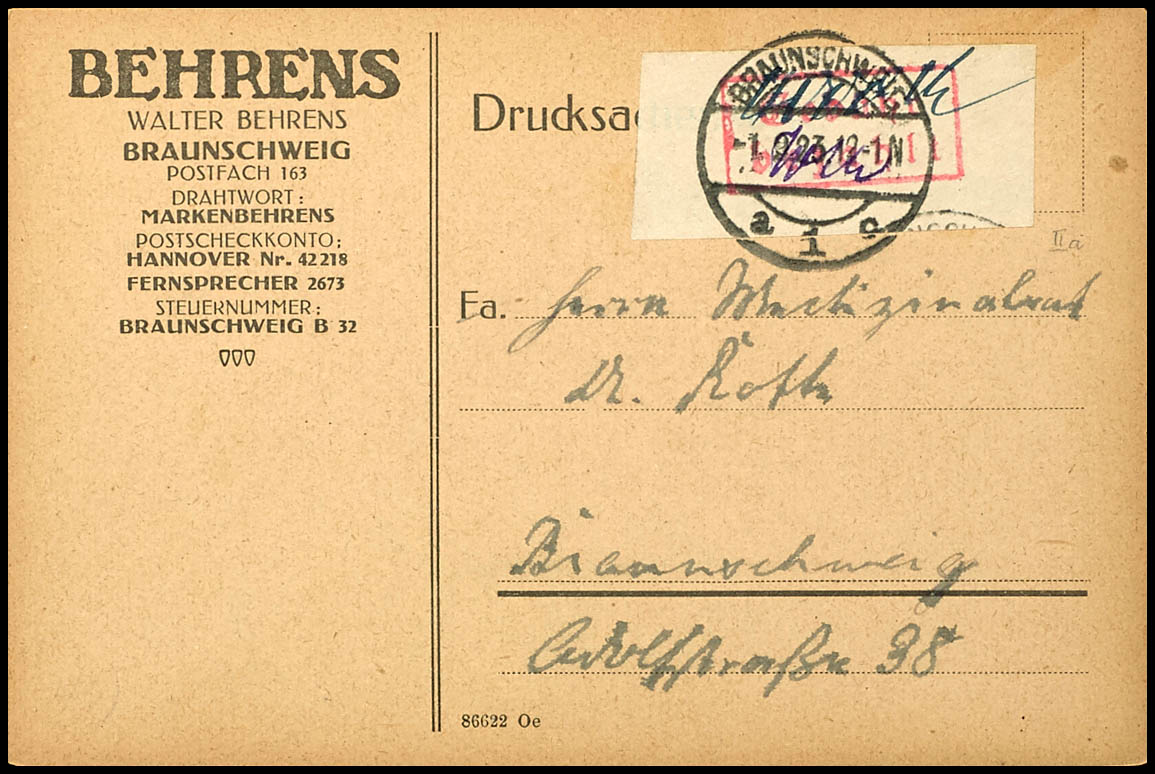 BEHRENS
WALTER BEHRENS
BRAUNSCHWEIG
POSTFACH 163
DRAHTWORT:
MARKENBEHRENS
POSTSCHECKKONTO:
HANNOVER Nr. 42218
FERNSPRECHER 2673
STEUERNUMMER:
BRAUNSCHWEIG B 32
Drucksac
BRAUNSCHWEIG
-1.9.23.12-1N
a 1 c
IIa
Fa. Herrn Medizinalrat
Dr. Roth
Braunschweig
Adolfstraße 38
86622 Oe